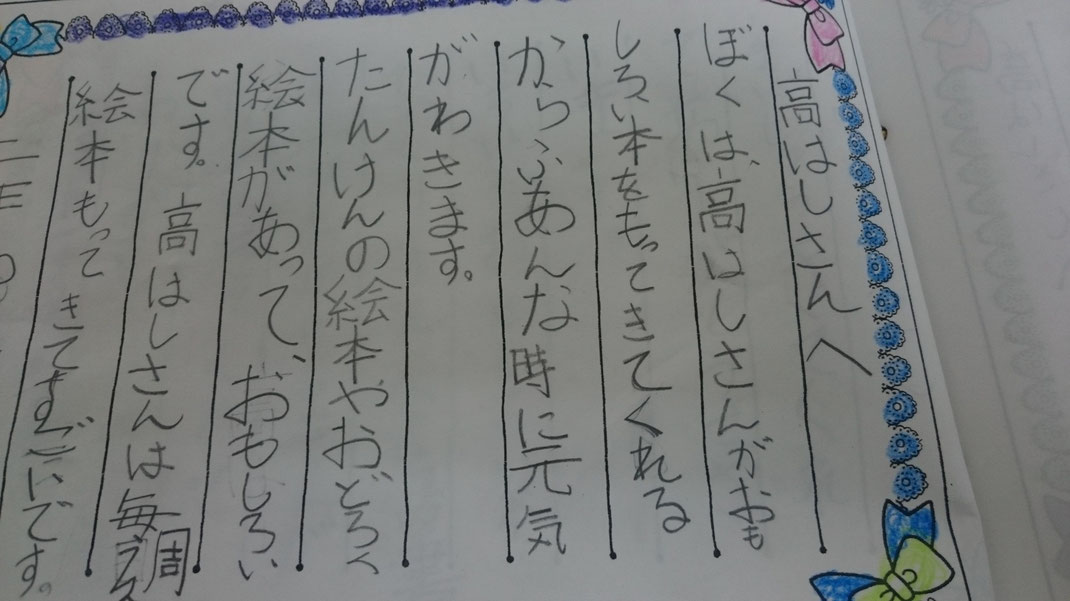 高はしさんへ
ぼくは、高はしさんがおも
しろい本をもってきてくれる
からふあんな時に元気
がわきます。
たんけんの絵本やおどろく
絵本があって、おもしろい
です。高はしさんは毎週
絵本もってきてすごいです。